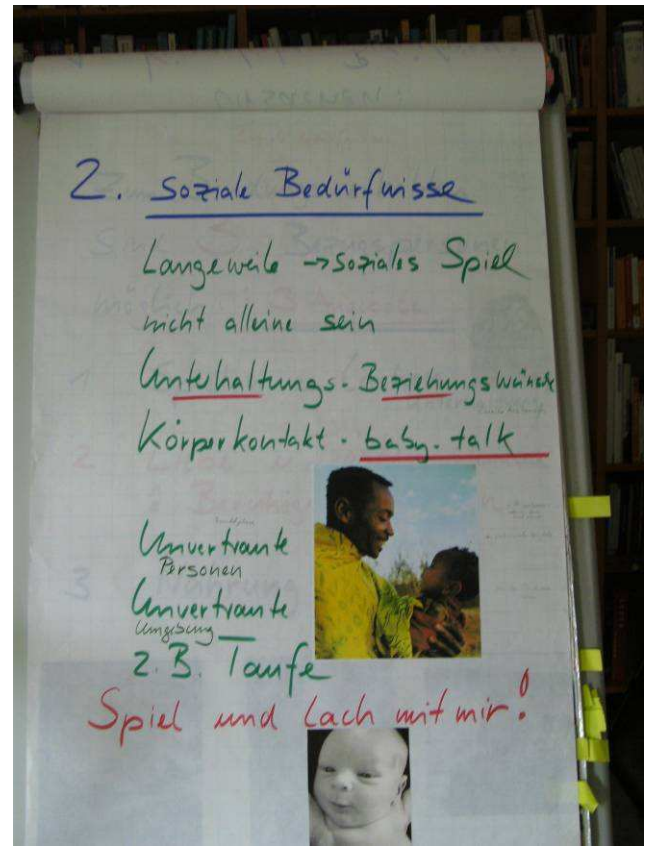 2. Soziale Bedürfnisse
Langeweile → Soziales Spiel
nicht alleine sein
Unterhaltungs- Beziehungswünsche
Körperkontakt - baby-talk
Unvertraute
Personen
Unvertraute
Umgebung
z.B. Taufe
Spiel und Lach mit mir!